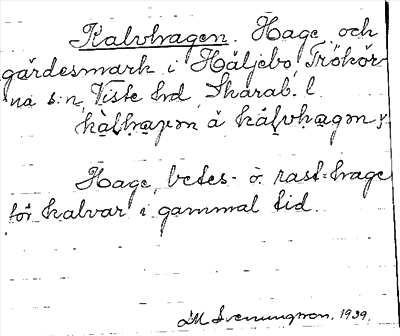 Kalvhagen. Hage och
gärdesmark i Häljebo, Trökör-
na s:n, Viste hd, Skarab. l.
kàlhaɡən å kálvhaɡən,
Hage, betes- o. rast-hage
för kalvar i gammal tid.
DM Svenungson. 1939.